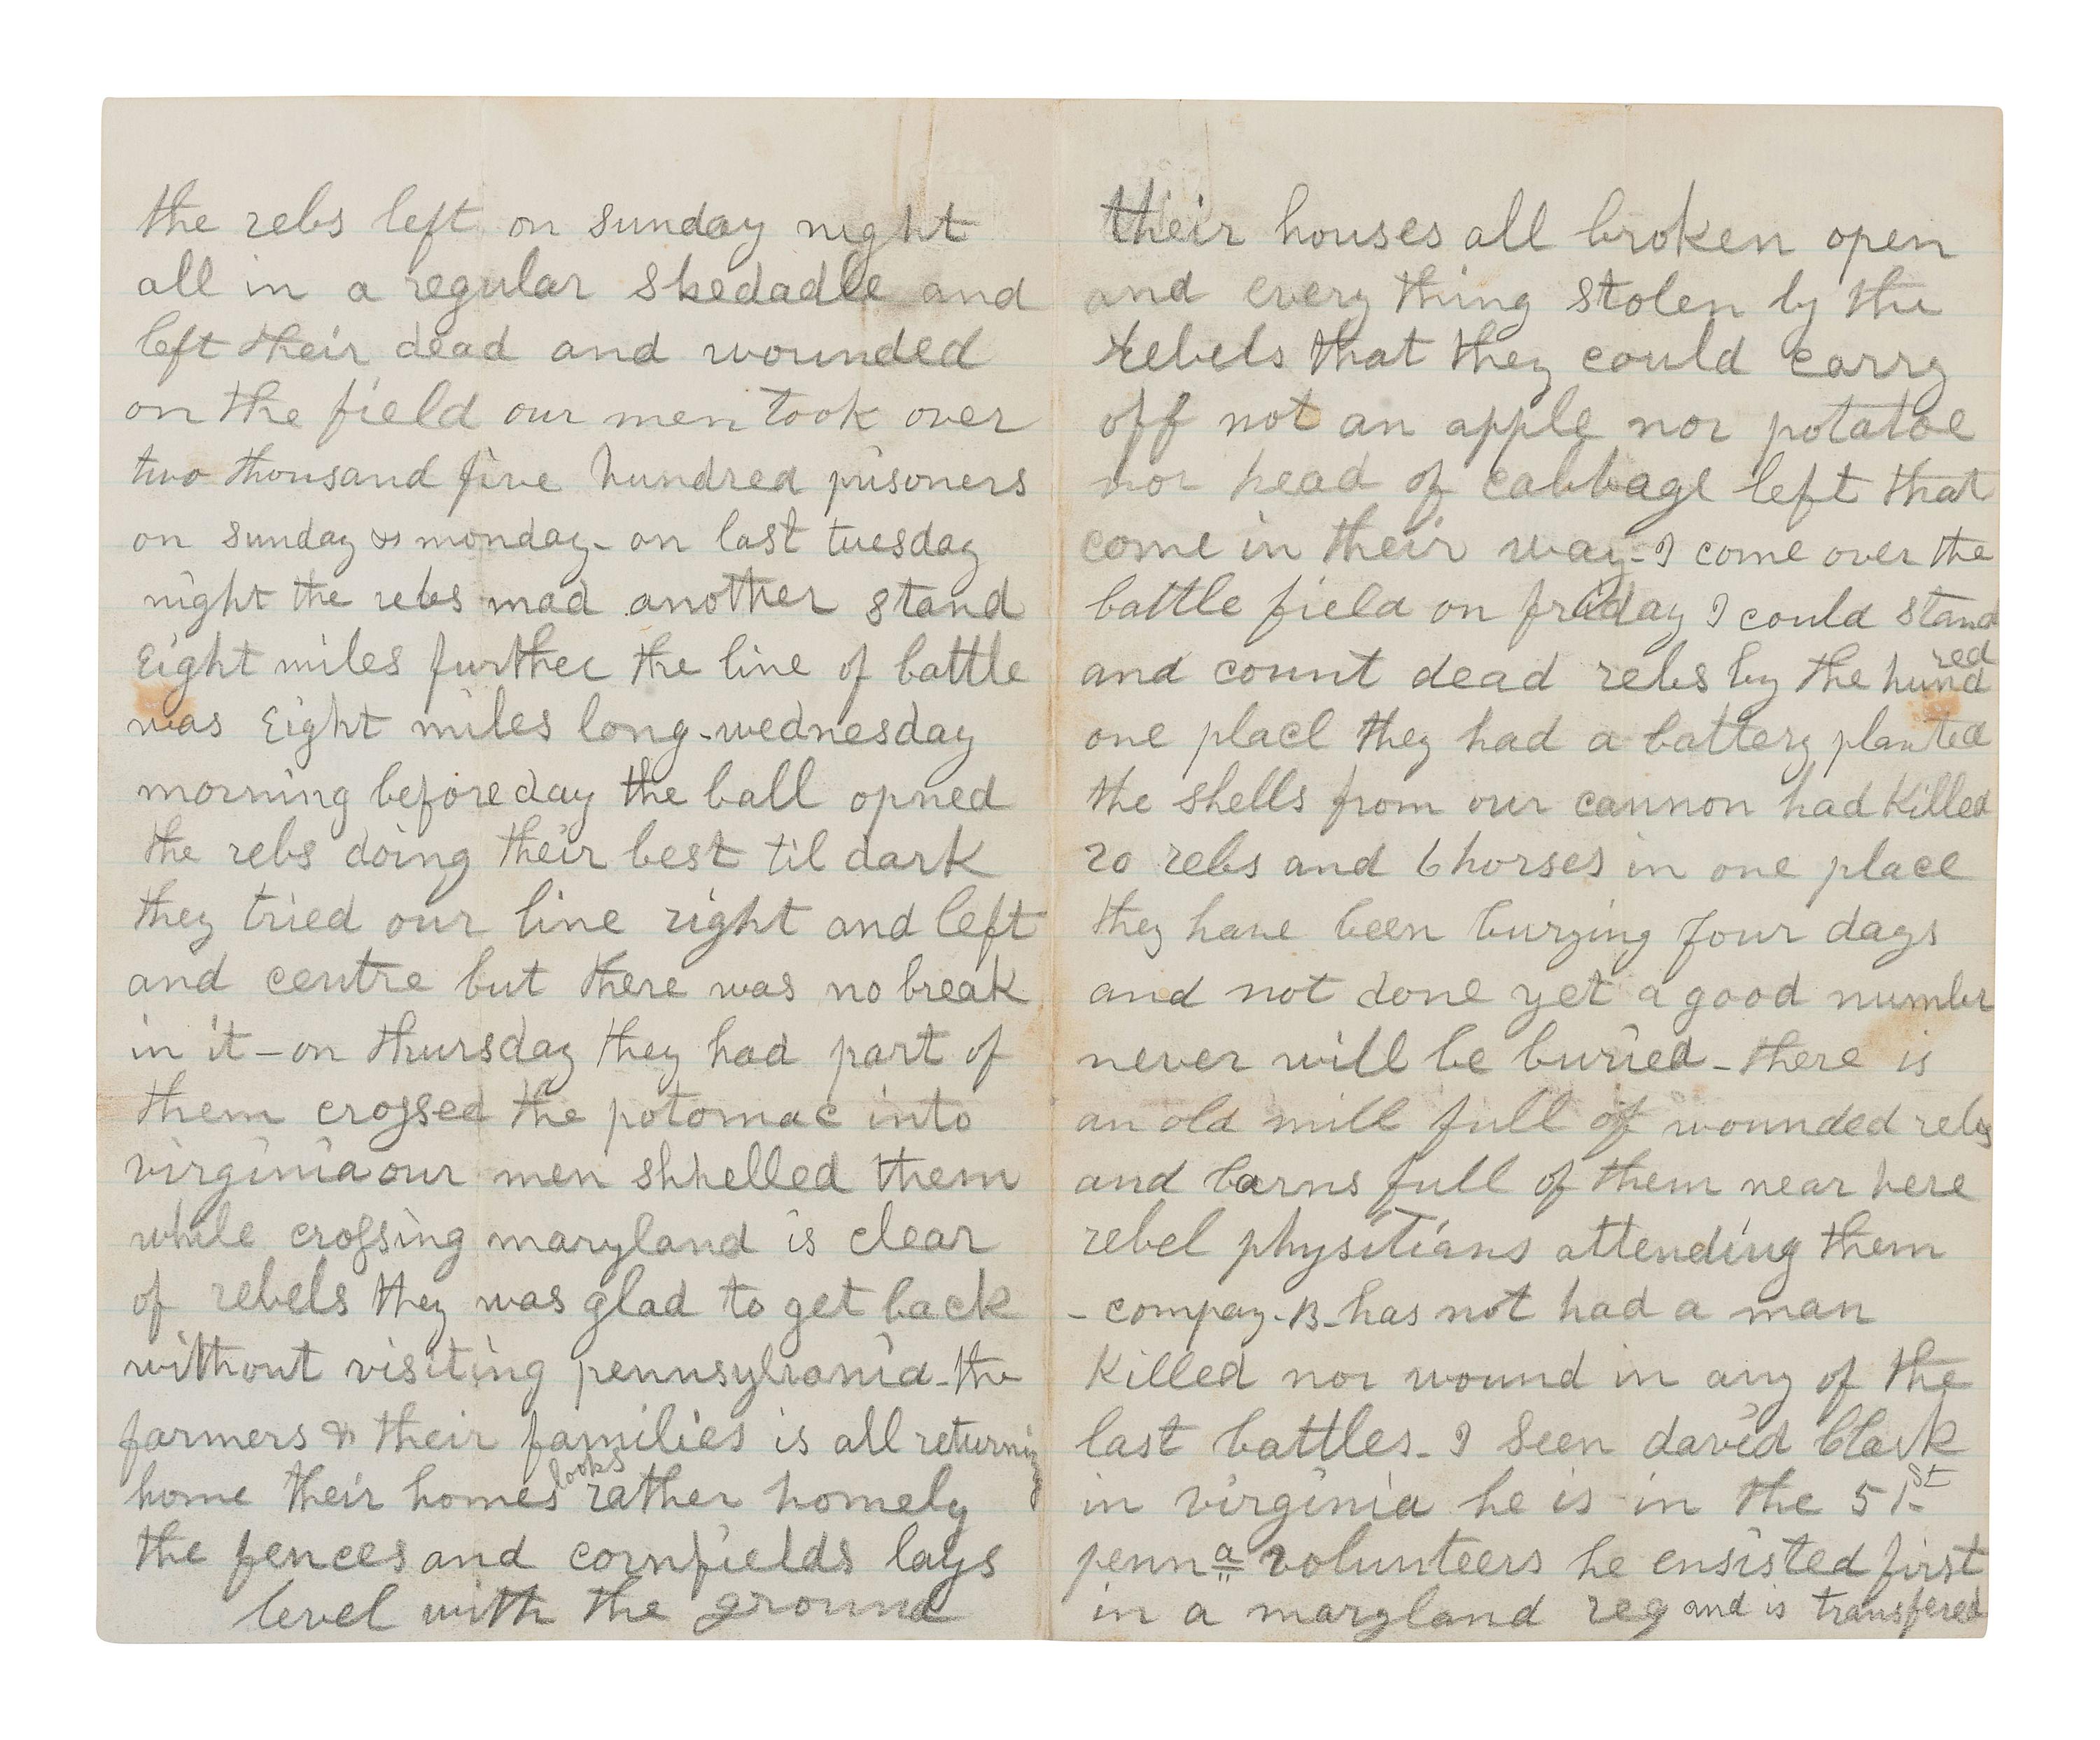 the rebs left on sunday night
all in a regular Skedadle and
left their dead and wounded
on the field our men took over
two thousand five hundred prisoners
on sunday & monday - on last tuesday
night the rebs mad another stand
Eight miles further the line of battle
was Eight miles long - wednesday
morning before day the ball opned
the rebs doing their best til dark
they tried our line right and left
and centre but there was no break
in it - on thursday they had part of
them crossed the potomac into
virginia our men shhelled them
while crossing maryland is clear
of rebels they was glad to get back
without visiting pennsylvania - the
farmers & their families is all returning
home their homes looks rather homely
the fences and cornfields lays
level with the ground
their houses all broken open
and every thing stolen by the
rebels that they could carry
off not an apple nor potatoe
nor head of cabbage left that
come in their way - I come over the
battle field on friday I could stand
and count dead rebs by the hundred
one place they had a battery planted
the shells from our cannon had killed
20 rebs and 6 horses in one place
they have been burying four days
and not done yet a good number
never will be buried - there is
an old mill full of wounded rebs
and barns full of them near here
rebel physitians attending them
- compay - B - has not had a man
killed nor wound in any of the
last battles - I seen david black
in virginia he is in the 51st
penna volunteers he ensisted first
in a maryland reg and is transfered